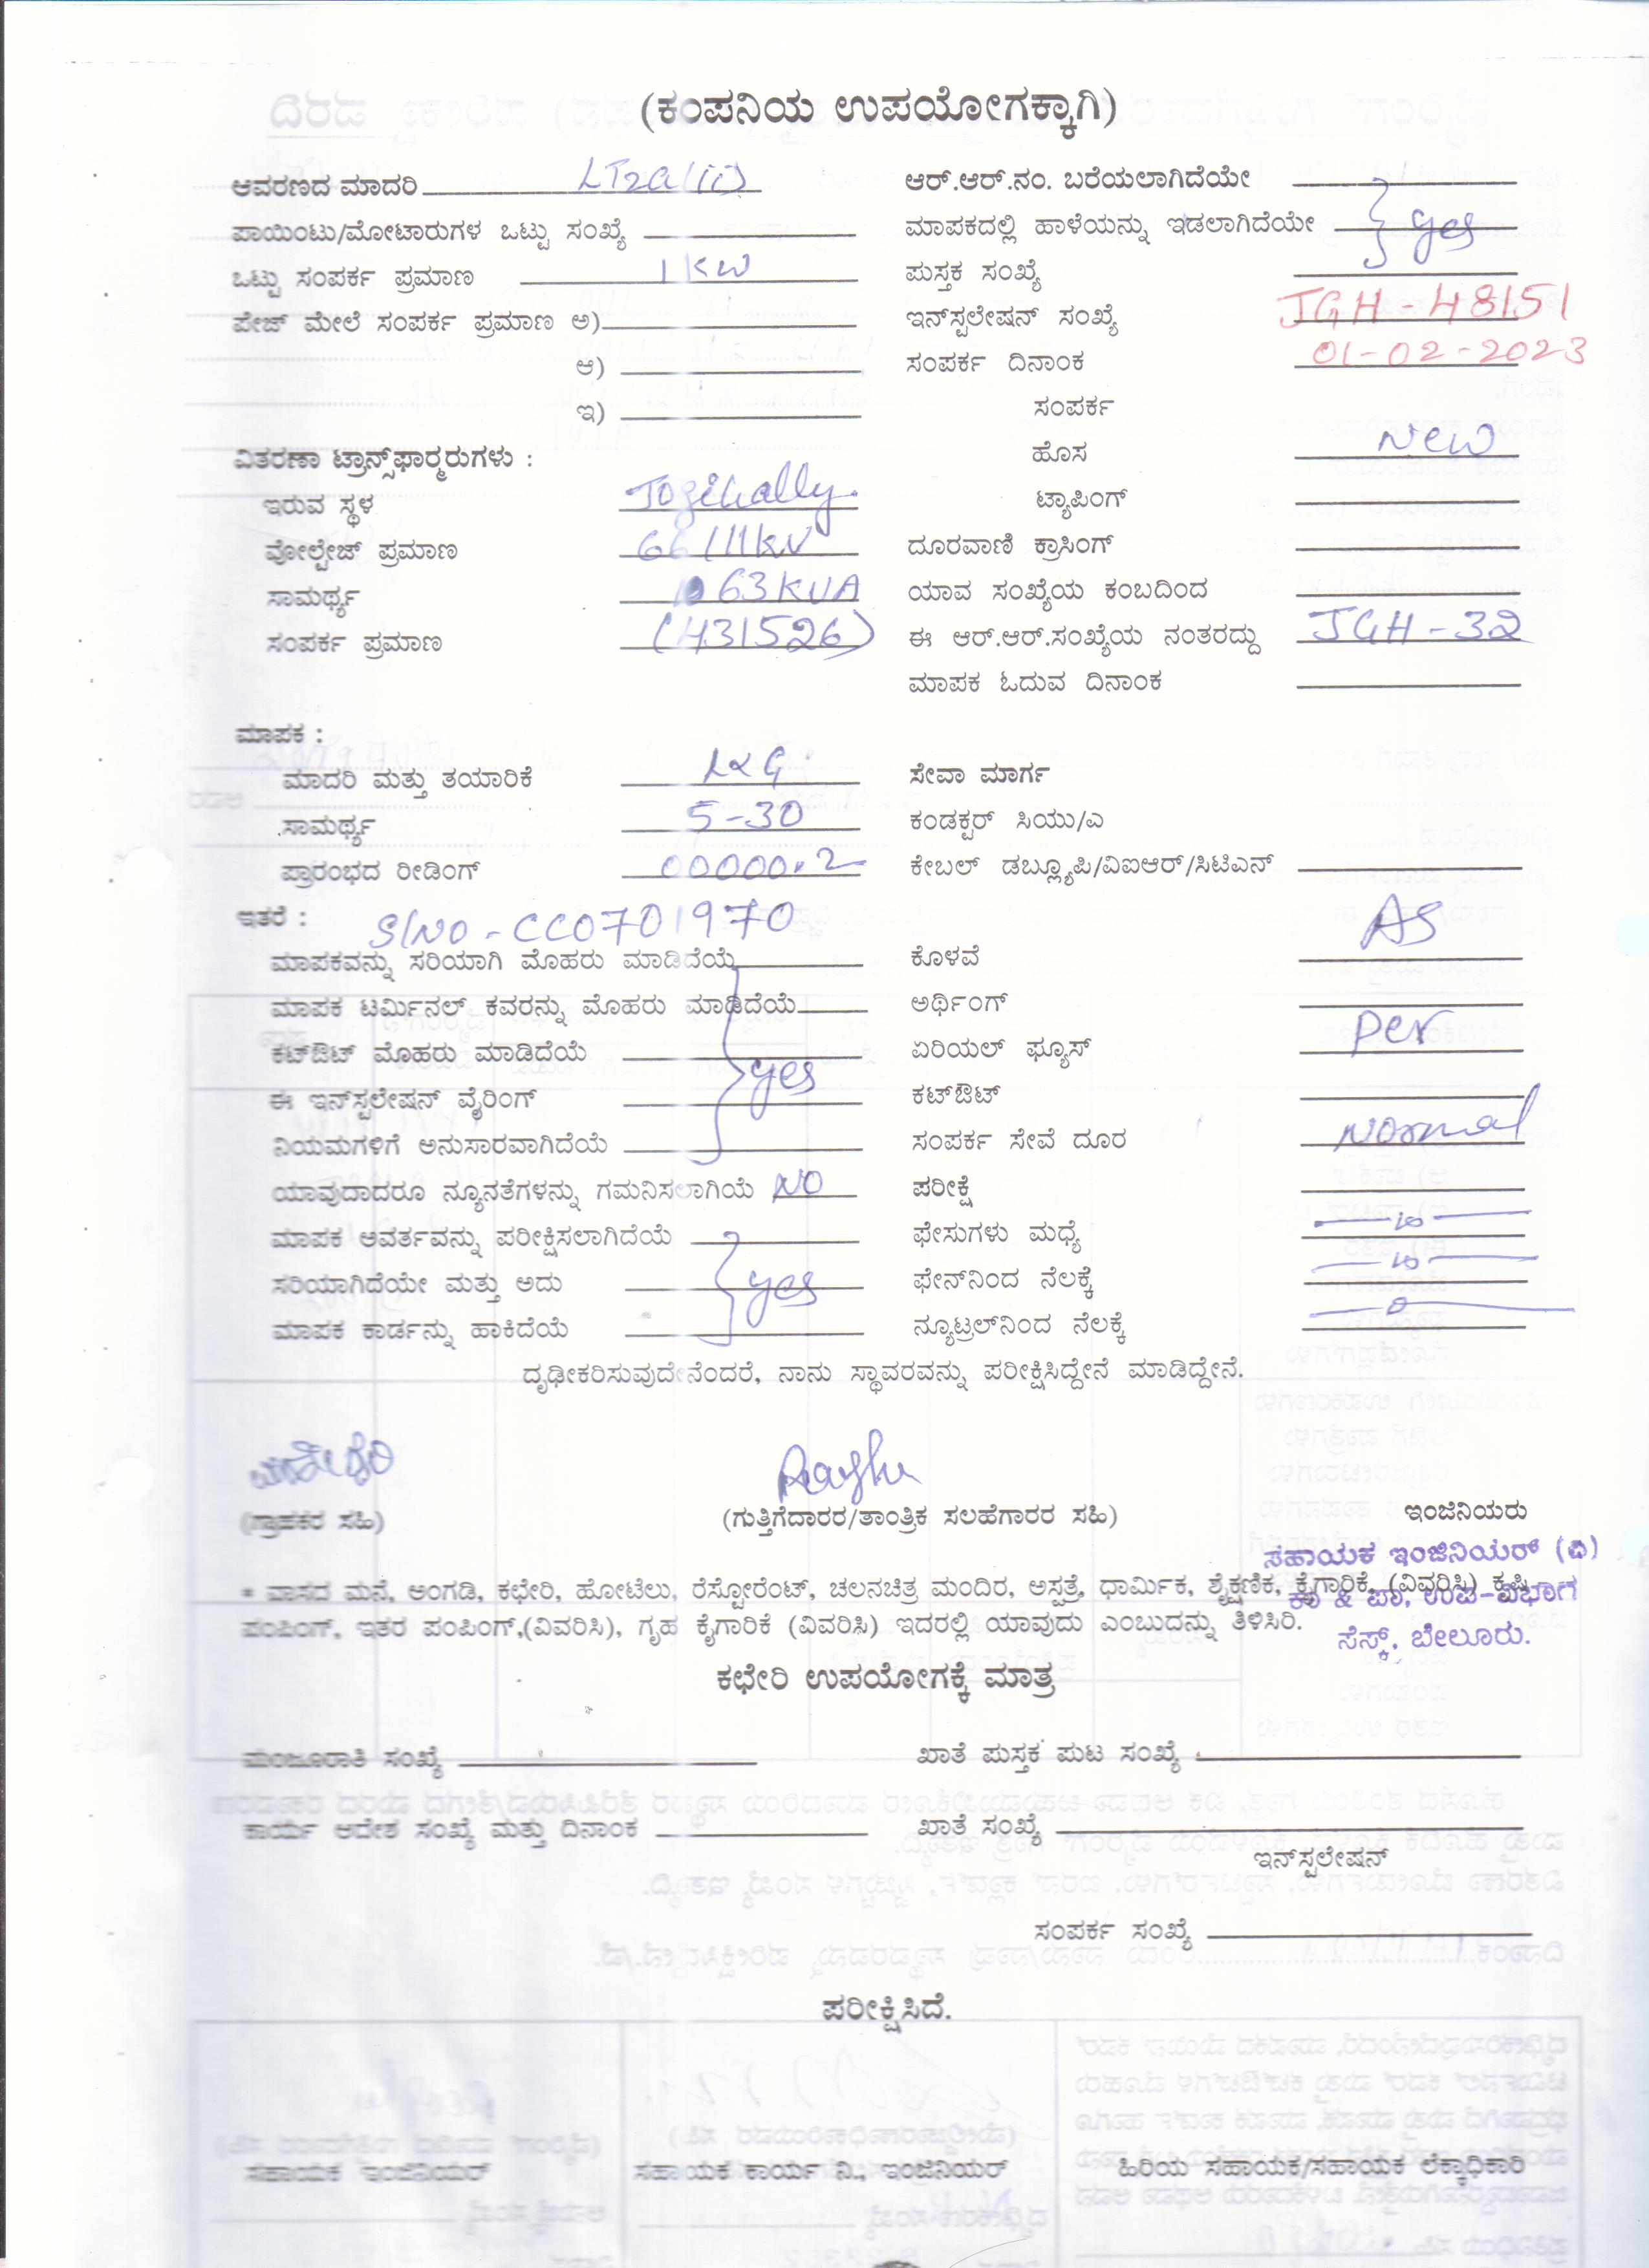 (ಕಂಪನಿಯ ಉಪಯೋಗಕ್ಕಾಗಿ)
ಆವರಣದ ಮಾದರಿ LT2a(ii)
ಪಾಯಿಂಟು/ಮೋಟಾರುಗಳ ಒಟ್ಟು ಸಂಖ್ಯೆ
ಒಟ್ಟು ಸಂಪರ್ಕ ಪ್ರಮಾಣ 1 KW
ಪೇಜ್ ಮೇಲೆ ಸಂಪರ್ಕ ಪ್ರಮಾಣ ಅ)
ಆ)
ಇ)
ವಿತರಣಾ ಟ್ರಾನ್ಸ್‌ಫಾರ್ಮರುಗಳು :
ಇರುವ ಸ್ಥಳ Jogihally
ವೋಲ್ಟೇಜ್ ಪ್ರಮಾಣ 66/11KV
ಸಾಮರ್ಥ್ಯ 63KVA
ಸಂಪರ್ಕ ಪ್ರಮಾಣ (431526)
ಆರ್.ಆರ್.ನಂ. ಬರೆಯಲಾಗಿದೆಯೇ
ಮಾಪಕದಲ್ಲಿ ಹಾಳೆಯನ್ನು ಇಡಲಾಗಿದೆಯೇ yes
ಪುಸ್ತಕ ಸಂಖ್ಯೆ
ಇನ್‌ಸ್ಟಲೇಷನ್ ಸಂಖ್ಯೆ JGH - 48151
ಸಂಪರ್ಕ ದಿನಾಂಕ 01-02-2023
ಸಂಪರ್ಕ
ಹೊಸ New
ಟ್ಯಾಪಿಂಗ್
ದೂರವಾಣಿ ಕ್ರಾಸಿಂಗ್
ಯಾವ ಸಂಖ್ಯೆಯ ಕಂಬದಿಂದ
ಈ ಆರ್.ಆರ್.ಸಂಖ್ಯೆಯ ನಂತರದ್ದು JGH - 32
ಮಾಪಕ ಓದುವ ದಿನಾಂಕ
ಮಾಪಕ :
ಮಾದರಿ ಮತ್ತು ತಯಾರಿಕೆ L&G
ಸಾಮರ್ಥ್ಯ 5-30
ಪ್ರಾರಂಭದ ರೀಡಿಂಗ್ 00000.2
ಇತರೆ : Sl No - CC0701970
ಮಾಪಕವನ್ನು ಸರಿಯಾಗಿ ಮೊಹರು ಮಾಡಿದೆಯೆ
ಮಾಪಕ ಟರ್ಮಿನಲ್ ಕವರನ್ನು ಮೊಹರು ಮಾಡಿದೆಯೆ
ಕಟ್‌ಔಟ್ ಮೊಹರು ಮಾಡಿದೆಯೆ yes
ಈ ಇನ್‌ಸ್ಟಲೇಷನ್ ವೈರಿಂಗ್
ನಿಯಮಗಳಿಗೆ ಅನುಸಾರವಾಗಿದೆಯೆ
ಯಾವುದಾದರೂ ನ್ಯೂನತೆಗಳನ್ನು ಗಮನಿಸಲಾಗಿಯೆ NO
ಮಾಪಕ ಆವರ್ತವನ್ನು ಪರೀಕ್ಷಿಸಲಾಗಿದೆಯೆ
ಸರಿಯಾಗಿದೆಯೇ ಮತ್ತು ಅದು yes
ಮಾಪಕ ಕಾರ್ಡನ್ನು ಹಾಕಿದೆಯೆ
ಸೇವಾ ಮಾರ್ಗ
ಕಂಡಕ್ಟರ್ ಸಿಯು/ಎ
ಕೇಬಲ್ ಡಬ್ಲ್ಯೂಪಿ/ವಿಐಆರ್/ಸಿಟಿಎನ್
ಕೊಳವೆ AS
ಅರ್ಥಿಂಗ್
ಏರಿಯಲ್ ಫ್ಯೂಸ್ Per
ಕಟ್‌ಔಟ್
ಸಂಪರ್ಕ ಸೇವೆ ದೂರ Normal
ಪರೀಕ್ಷೆ
ಫೇಸುಗಳು ಮಧ್ಯೆ
ಫೇನ್‌ನಿಂದ ನೆಲಕ್ಕೆ
ನ್ಯೂಟ್ರಲ್‌ನಿಂದ ನೆಲಕ್ಕೆ 0
ದೃಢೀಕರಿಸುವುದೇನೆಂದರೆ, ನಾನು ಸ್ಥಾವರವನ್ನು ಪರೀಕ್ಷಿಸಿದ್ದೇನೆ ಮಾಡಿದ್ದೇನೆ.
Raghu
(ಗ್ರಾಹಕರ ಸಹಿ) (ಗುತ್ತಿಗೆದಾರರ/ತಾಂತ್ರಿಕ ಸಲಹೆಗಾರರ ಸಹಿ) ಇಂಜಿನಿಯರು
ಸಹಾಯಕ ಇಂಜಿನಿಯರ್ (ವಿ)
* ವಾಸದ ಮನೆ, ಅಂಗಡಿ, ಕಛೇರಿ, ಹೋಟೆಲು, ರೆಸ್ಟೋರೆಂಟ್, ಚಲನಚಿತ್ರ ಮಂದಿರ, ಅಸ್ಪತ್ರೆ, ಧಾರ್ಮಿಕ, ಶೈಕ್ಷಣಿಕ, ಕೈಗಾರಿಕೆ, (ವಿವರಿಸಿ) ಕೃಷಿ
ಕಾ & ಪಾ, ಉಪ-ವಿಭಾಗ
ಪಂಪಿಂಗ್, ಇತರ ಪಂಪಿಂಗ್,(ವಿವರಿಸಿ), ಗೃಹ ಕೈಗಾರಿಕೆ (ವಿವರಿಸಿ) ಇದರಲ್ಲಿ ಯಾವುದು ಎಂಬುದನ್ನು ತಿಳಿಸಿರಿ.
ಸೆಸ್ಕ್, ಬೇಲೂರು.
ಕಛೇರಿ ಉಪಯೋಗಕ್ಕೆ ಮಾತ್ರ
ಮಂಜೂರಾತಿ ಸಂಖ್ಯೆ ಖಾತೆ ಪುಸ್ತಕ ಪುಟ ಸಂಖ್ಯೆ
ಕಾರ್ಯ ಆದೇಶ ಸಂಖ್ಯೆ ಮತ್ತು ದಿನಾಂಕ ಖಾತೆ ಸಂಖ್ಯೆ
ಇನ್‌ಸ್ಟಲೇಷನ್
ಸಂಪರ್ಕ ಸಂಖ್ಯೆ
ಪರೀಕ್ಷಿಸಿದೆ.
ಸಹಾಯಕ ಇಂಜಿನಿಯರ್ ಸಹಾಯಕ ಕಾರ್ಯ ನಿ., ಇಂಜಿನಿಯರ್ ಹಿರಿಯ ಸಹಾಯಕ/ಸಹಾಯಕ ಲೆಕ್ಕಾಧಿಕಾರಿ